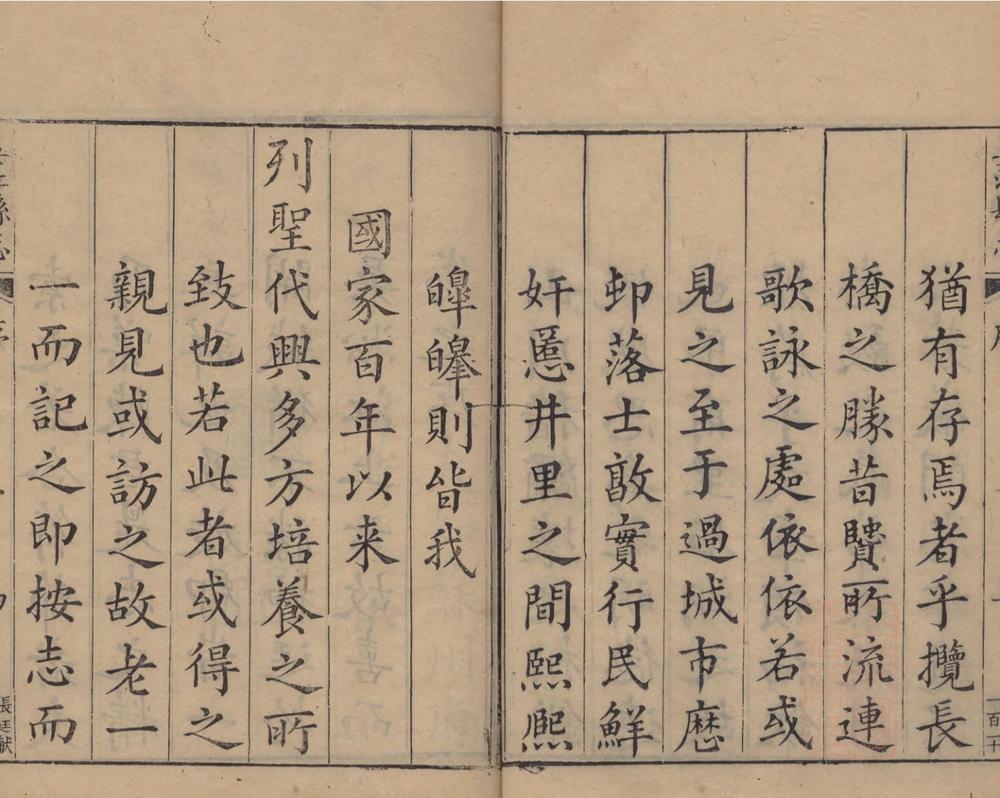 猶有存焉者乎攬長
橋之勝昔贒所流連
歌詠之處依依若或
見之至于過城市歷
邨落士敦實行民鮮
奸慝井里之間熙熙
皥皥則皆我
國家百年以来
列聖代興多方培養之所
致也若此者或得之
親見或訪之故老一
一而記之即按志而
張廷献